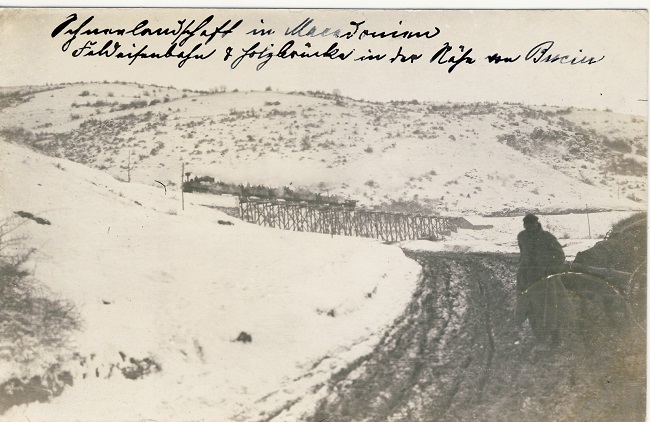 Schneelandschaft in Macedonien
Feldeisenbahn & Holzbrücke in der Nähe von